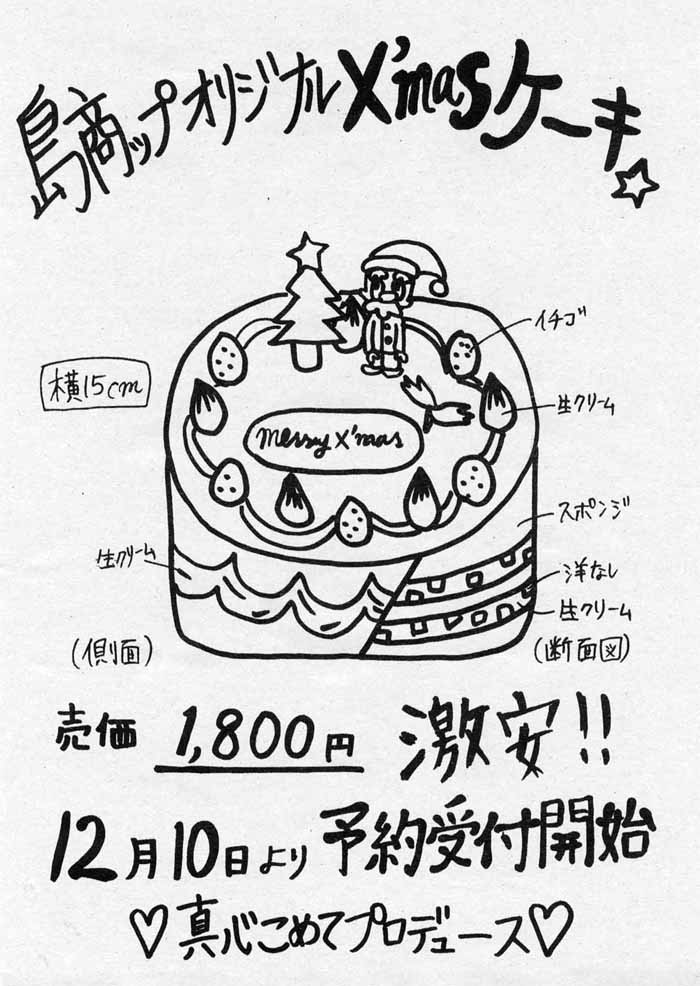 島商ップオリジナルX'masケーキ
イチゴ
横15cm
生クリーム
merry X'mas
スポンジ
生クリーム
洋なし
生クリーム
(側面)
(断面図)
売価 1,800円 激安!!
12月10日より予約受付開始
♡真心こめてプロデュース♡